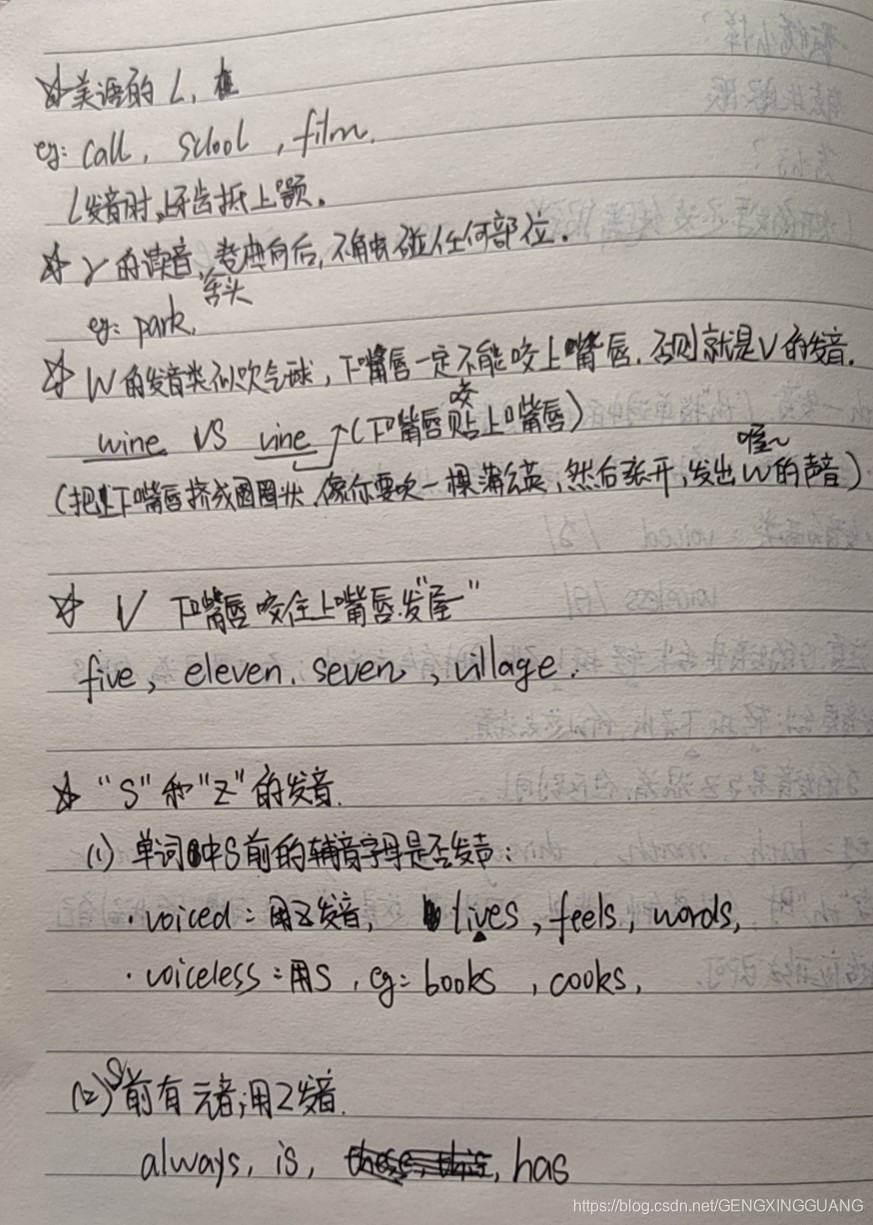 ☆美语的 L,
eg: call, school, film.
L发音时,牙齿抵上颚。
☆ r 的读音,卷曲向后,不能触碰任何部位.
舌头
eg: park,
☆ W 的发音类似吹气球,下嘴唇一定不能咬上嘴唇.否则就是V的发音.
咬
wine VS vine (下嘴唇贴上嘴唇)
喔~
(把上下嘴唇挤成圆圈状.像你要吹一棵蒲公英,然后张开,发出W的声音)
☆ V 下嘴唇咬住上嘴唇.发"屋"
five, eleven, seven, village.
☆ "S"和"Z"的发音.
(1) 单词中S前的辅音字母是否发声:
· voiced: 用Z发音, lives, feels, words,
· voiceless: 用S, eg: books, cooks,
(2) S前有元音,用Z发音.
always, is, has
https://blog.csdn.net/GENGXINGGUANG